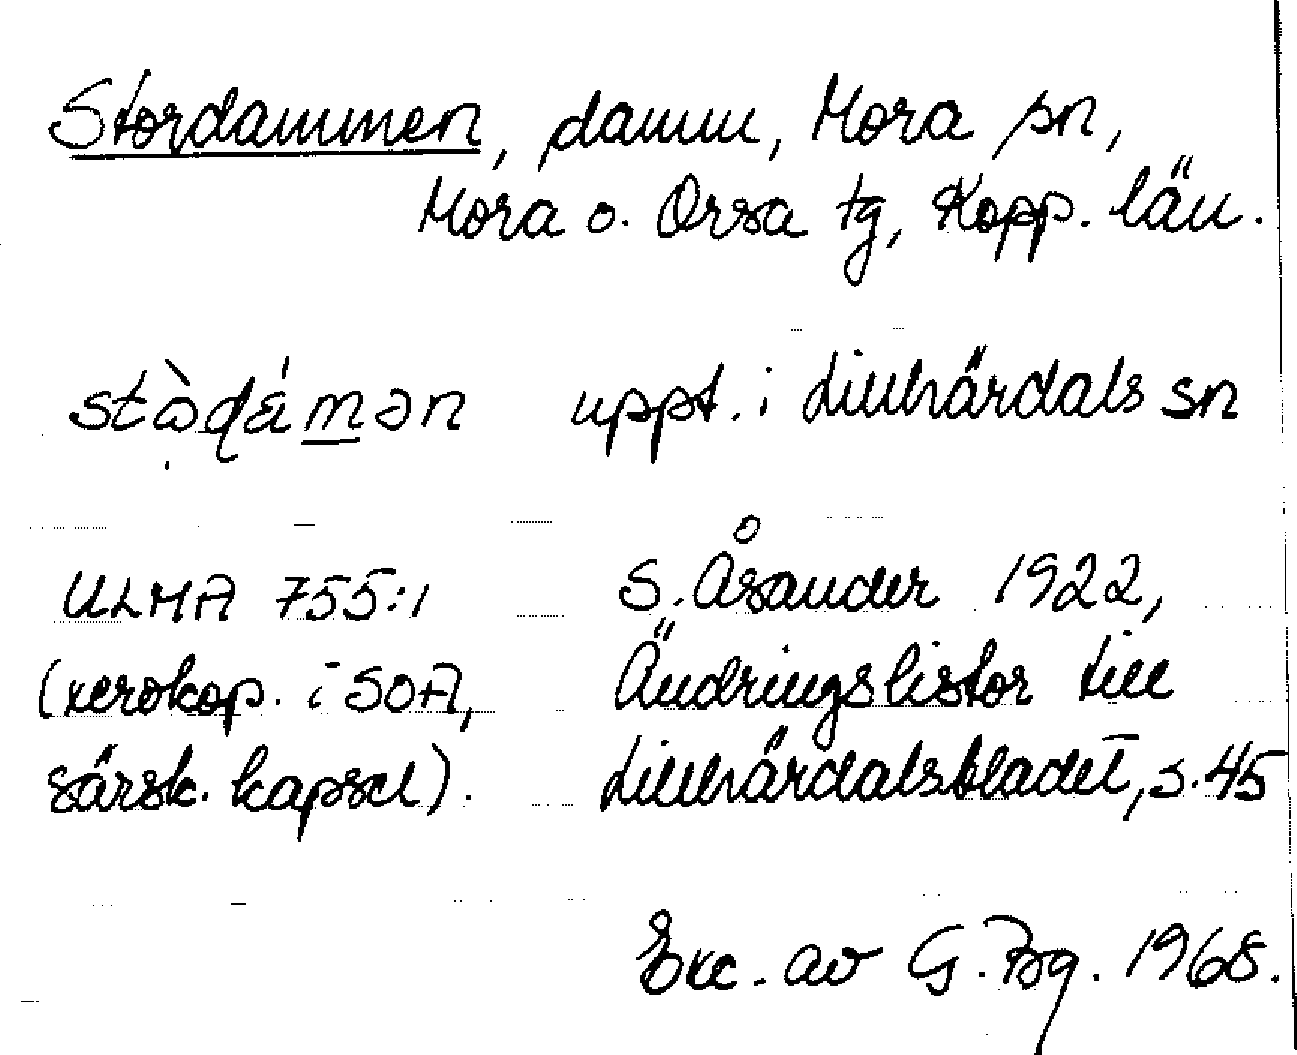 Stordammen, damm, Mora sn,
Mora o. Orsa tg, Kopp. län.
uppt. i Lillhärdals sn
ULMA 755:1 S. Åsander 1922,
(xerokop. i SOA, Ändringslistor till
särsk. kapsel). Lillhärdalsbladet, s. 45
Exc. av G. Bg. 1968.